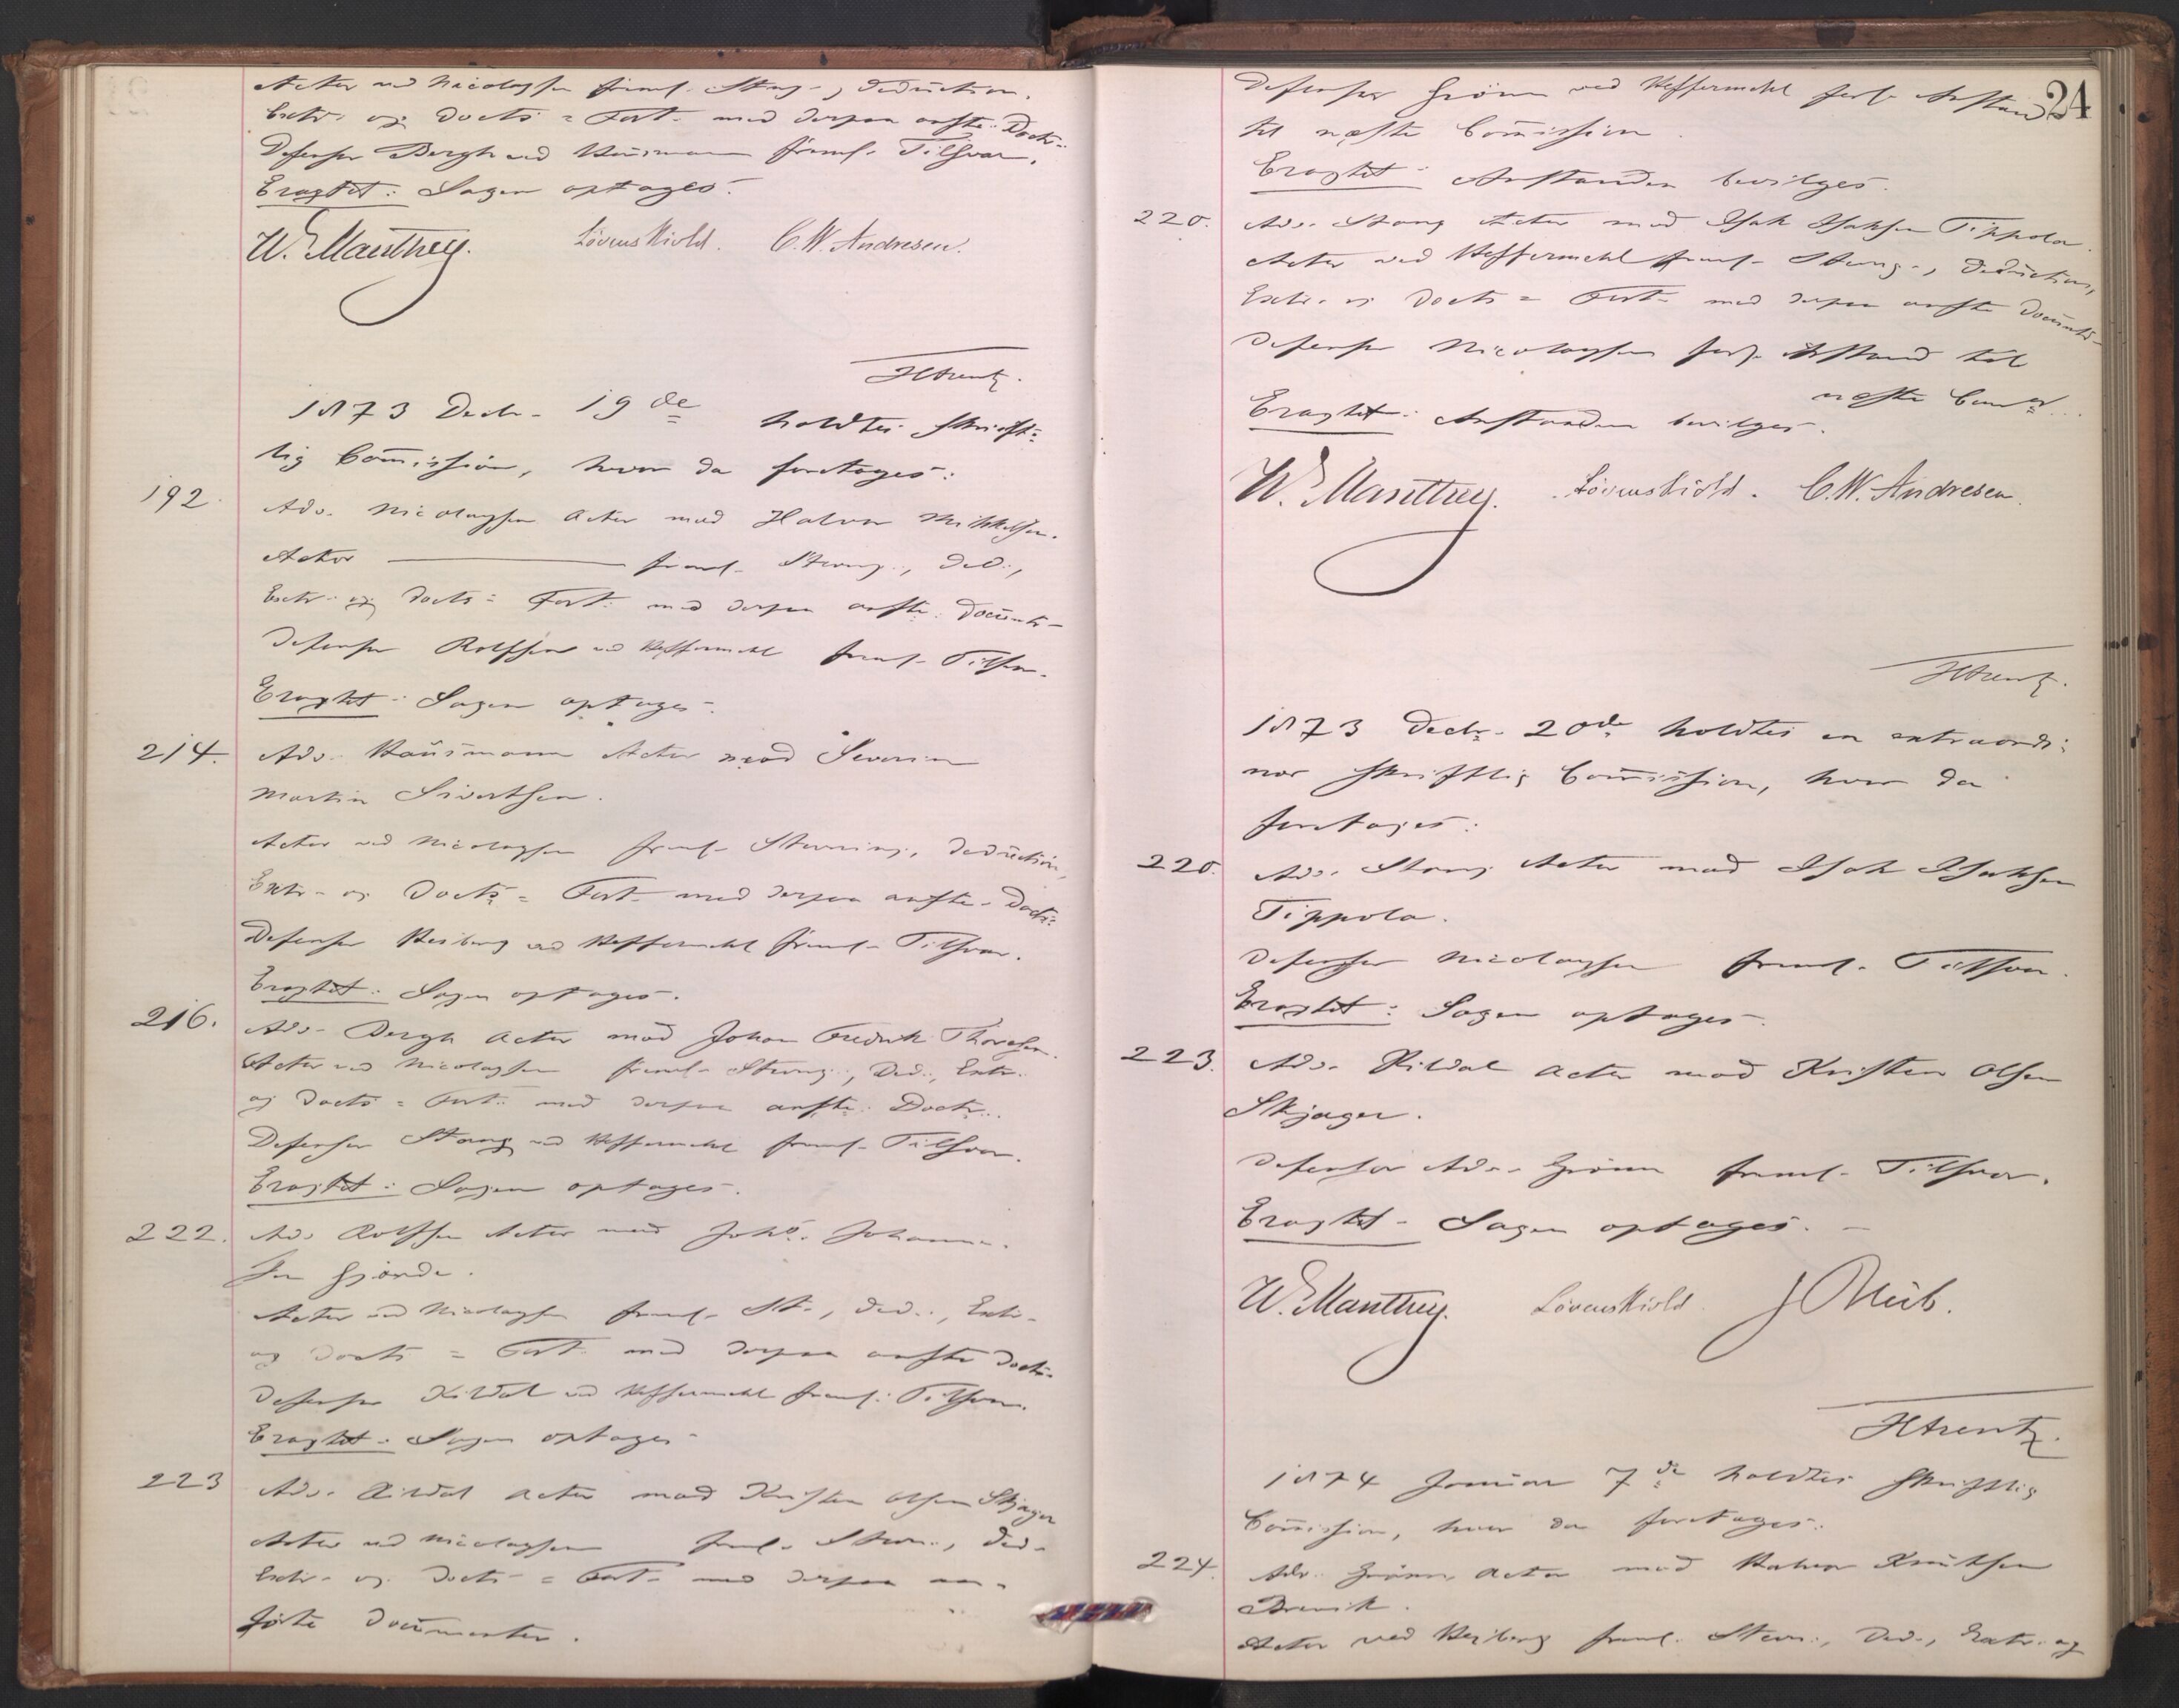 Actor ved Nicolaysen freml. Stevn., Deduction,
Extr. og Docts = Fort. med derpaa anfte. Doctr.
Defensor Bergh ved Hausmann freml. Tilsvar.
Eragtet: Sagen optages.
W. Manthey. Løvenskiold. C. W. Andresen.
HArentz.
1873 Decbr. 19de holdtes skrift-
lig Commission, hvor da foretoges:
192. Adv. Nicolaysen Actor mod Halvor Mikkelsen.
Actor ——— freml. Stevng., Ded.,
Extr. og Docts = Fort. med derpaa anfte. Documtr.
Defensor Rolfsen ved Heffermehl freml. Tilsvar.
Eragtet: Sagen optages.
214. Adv. Hausmann Actor mod Severin
Martin Sivertsen.
Actor ved Nicolaysen freml. Stevning, Deduction,
Extr. og Docts = Fort. med derpaa anfte. Doctr.
Defensor Heiberg ved Heffermehl freml. Tilsvar.
Eragtet: Sagen optages.
216. Adv. Bergh Actor mod Johan Fredrik Thoresen.
Actor ved Nicolaysen freml. Stevng., Ded., Extr.
og Docts = Fort. med derpaa anfte. Doctr.
Defensor Stang ved Heffermehl freml. Tilsvar.
Eragtet: Sagen optages.
222. Adv. Rolfsen Actor mod Johs. Johanne-
sen Gjørde.
Actor ved Nicolaysen freml. St., Ded., Extr.
og Docts = Fort. med derpaa anfte Doctr.
Defensor Kildal ved Heffermehl freml. Tilsvar.
Eragtet: Sagen optages
223 Adv. Kildal Actor mod Kristen Olsen Skjager
Actor ved Nicolaysen freml. Stevn., Ded.
Extr. og Docts = Fort. med derpaa an-
førte Documenter.
24
Defensor Grönn ved Heffermehl forl. Anstand
til næste Commission.
Eragtet: Anstanden bevilges.
220. Adv. Stang Actor mod Isak Isaksen Tippola.
Actor ved Heffermehl freml. Stevng., Deduction,
Extr. og Docts = Fort. med derpaa anfte Documtr.
Defensor Nicolaysen forl. Anstand til
næste Comon.
Eragtet: Anstanden bevilges.
W. Manthey. Løvenskiold. C. W. Andresen.
HArentz.
1873 Decbr. 20de holdtes en extraordi-
nær skriftlig Commission, hvor da
foretoges:
220. Adv. Stang Actor mod Isak Isaksen
Tippola.
Defensor Nicolaysen freml. Tilsvar.
Eragtet: Sagen optages.
223. Adv. Kildal Actor mod Kristen Olsen
Skjager.
Defensor Adv. Grönn freml. Tilsvar.
Eragtet. Sagen optages. —
W. Manthey. Løvenskiold.
HArentz.
1874 Januar 7de holdtes skriftlig
Commission, hvor da foretoges:
224. Adv. Grönn Actor mod Halvor Knutsen
Brevik.
Actor ved Heiberg freml. Stevn., Ded., Extr. og